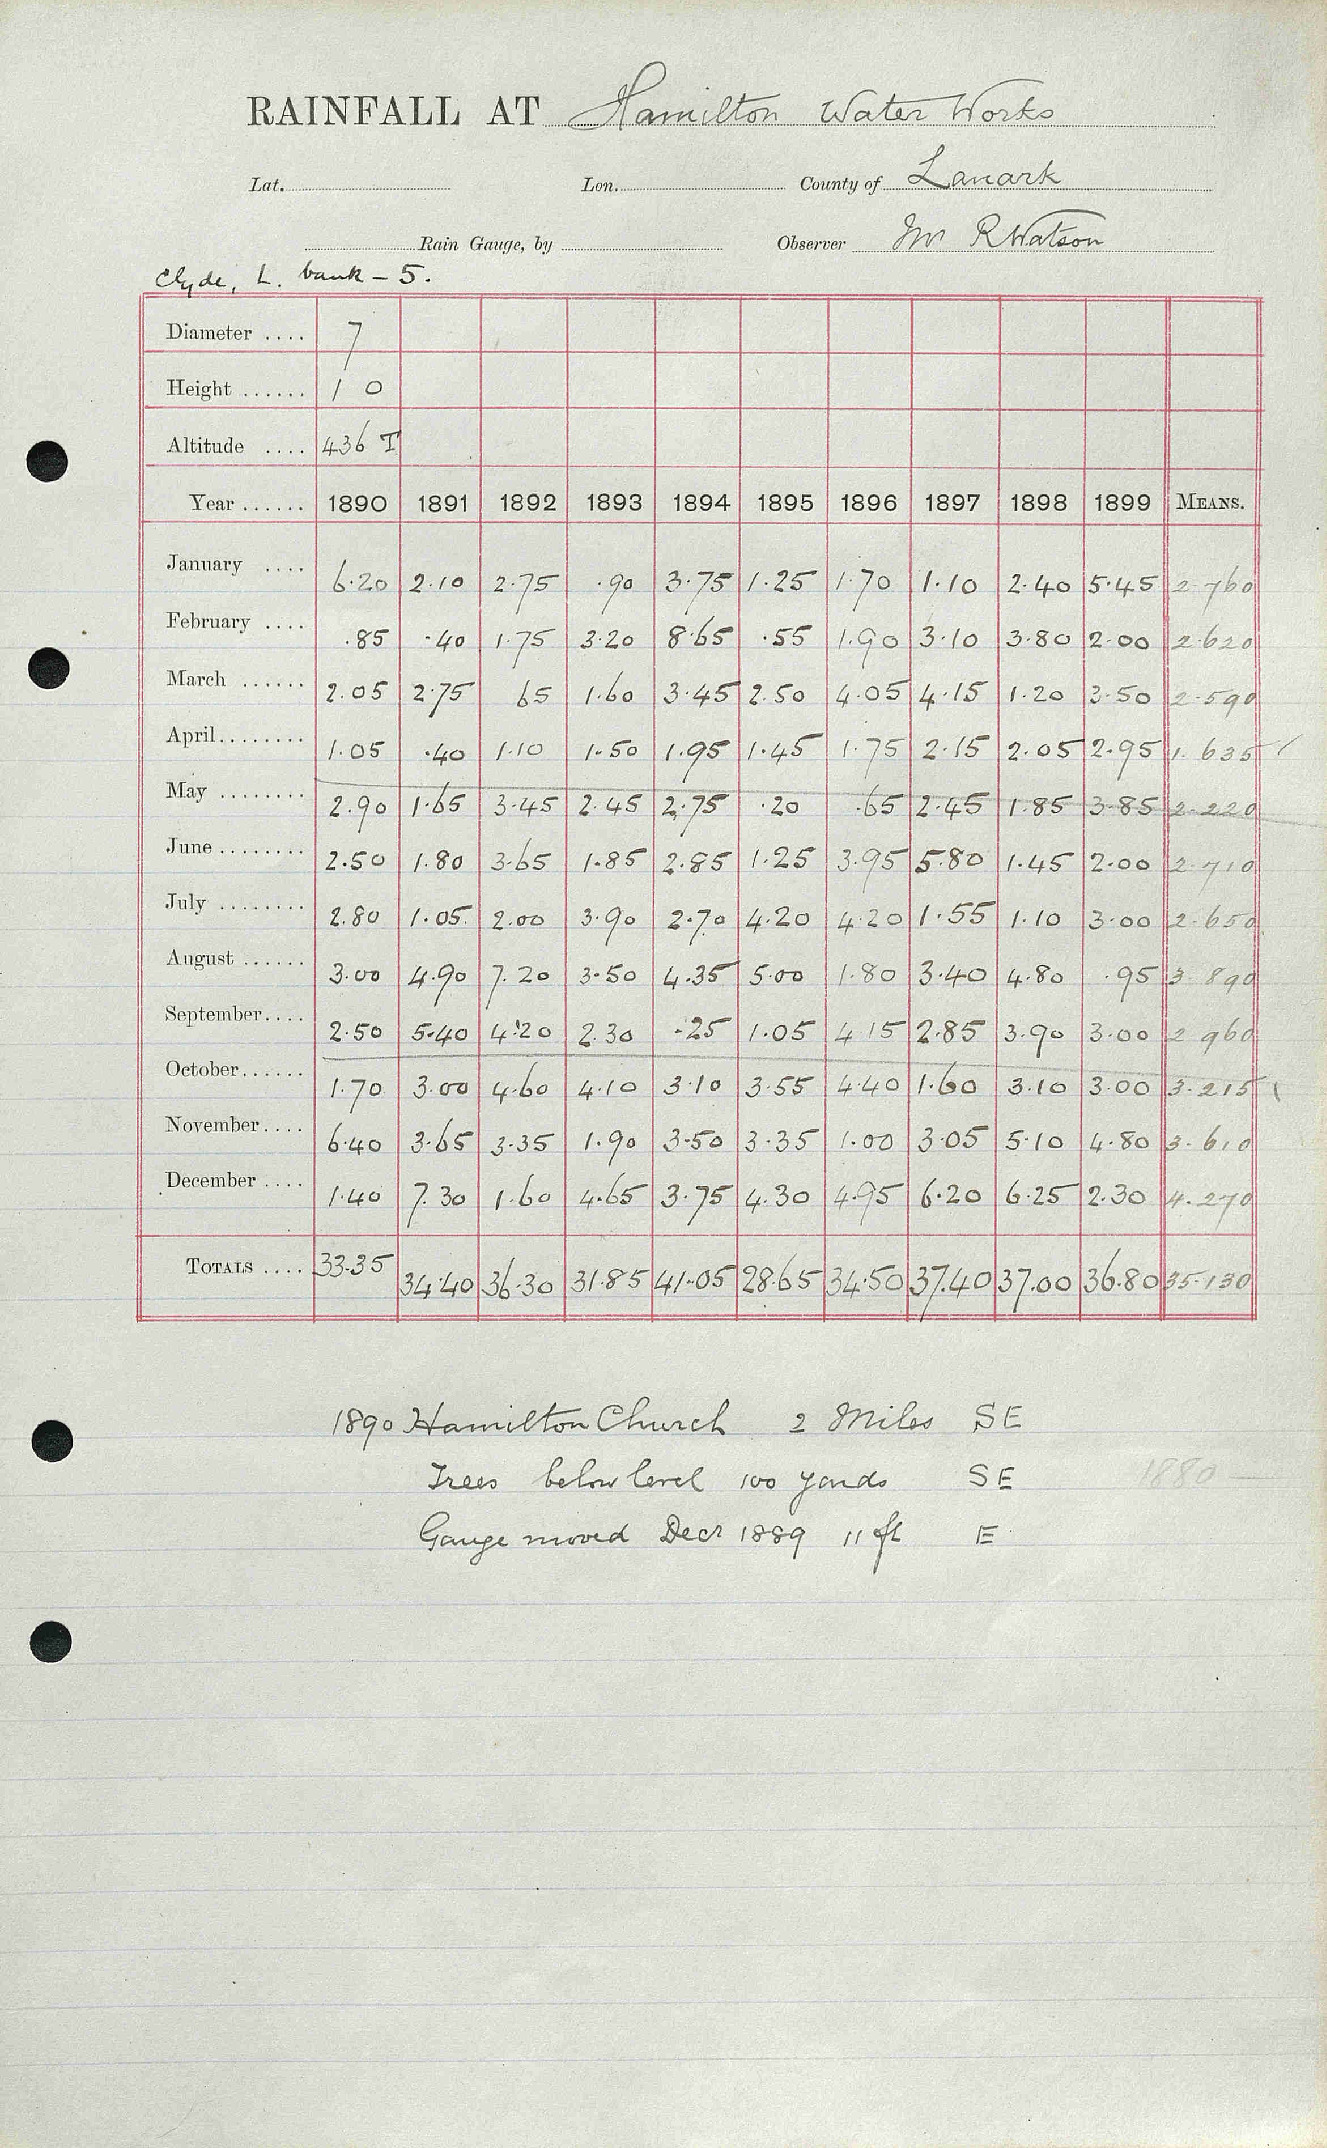 RAINFALL AT Hamilton Water Works
Lat. Lon. County of Lanark
Rain Gauge, by Observer Mr R Watson
Clyde, L. bank - 5.
Diameter .... 7
Height ...... 1 0
Altitude .... 436 T
Year ...... 1890 1891 1892 1893 1894 1895 1896 1897 1898 1899 MEANS.
January .... 6.20 2.10 2.75 .90 3.75 1.25 1.70 1.10 2.40 5.45 2.760
February .... .85 .40 1.75 3.20 8.65 .55 1.90 3.10 3.80 2.00 2.620
March ...... 2.05 2.75 65 1.60 3.45 2.50 4.05 4.15 1.20 3.50 2.590
April........ 1.05 .40 1.10 1.50 1.95 1.45 1.75 2.15 2.05 2.95 1.635
May ........ 2.90 1.65 3.45 2.45 2.75 .20 .65 2.45 1.85 3.85 2.220
June ........ 2.50 1.80 3.65 1.85 2.85 1.25 3.95 5.80 1.45 2.00 2.710
July ........ 2.80 1.05 2.00 3.90 2.70 4.20 4.20 1.55 1.10 3.00 2.650
August ...... 3.00 4.90 7.20 3.50 4.35 5.00 1.80 3.40 4.80 .95 3.890
September.... 2.50 5.40 4.20 2.30 .25 1.05 4.15 2.85 3.90 3.00 2.960
October...... 1.70 3.00 4.60 4.10 3.10 3.55 4.40 1.60 3.10 3.00 3.215
November.... 6.40 3.65 3.35 1.90 3.50 3.35 1.00 3.05 5.10 4.80 3.610
December .... 1.40 7.30 1.60 4.65 3.75 4.30 4.95 6.20 6.25 2.30 4.270
TOTALS .... 33.35 34.40 36.30 31.85 41.05 28.65 34.50 37.40 37.00 36.80 35.130
1890 Hamilton Church 2 Miles SE
Trees below level 100 yards SE 1880
Gauge moved Decr 1889 11 ft E